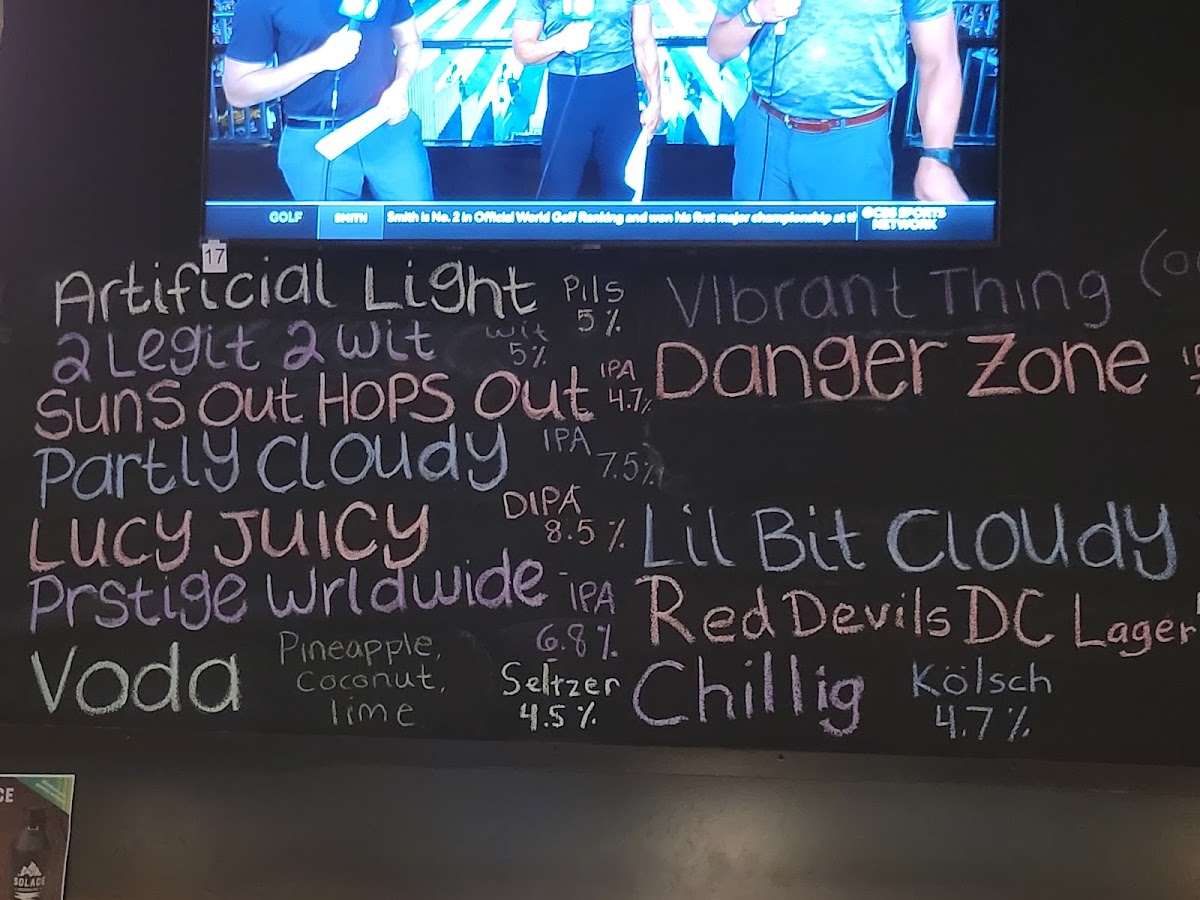 GOLF SMITH Smith is No. 2 in Official World Golf Ranking and won his first major championship at t CBS SPORTS
NETWORK
17
Artificial Light Pils
5%
2 Legit 2 Wit wit
5%
Suns Out Hops Out IPA
4.7%
Partly Cloudy IPA
7.5%
Lucy Juicy DIPA
8.5%
Prstige Wrldwide IPA
6.8%
Voda Pineapple,
Coconut,
lime
Seltzer
4.5%
VIbrant Thing
Danger Zone
Lil Bit Cloudy
Red Devils DC Lager
Chillig Kölsch
4.7%
CE
SOLACE